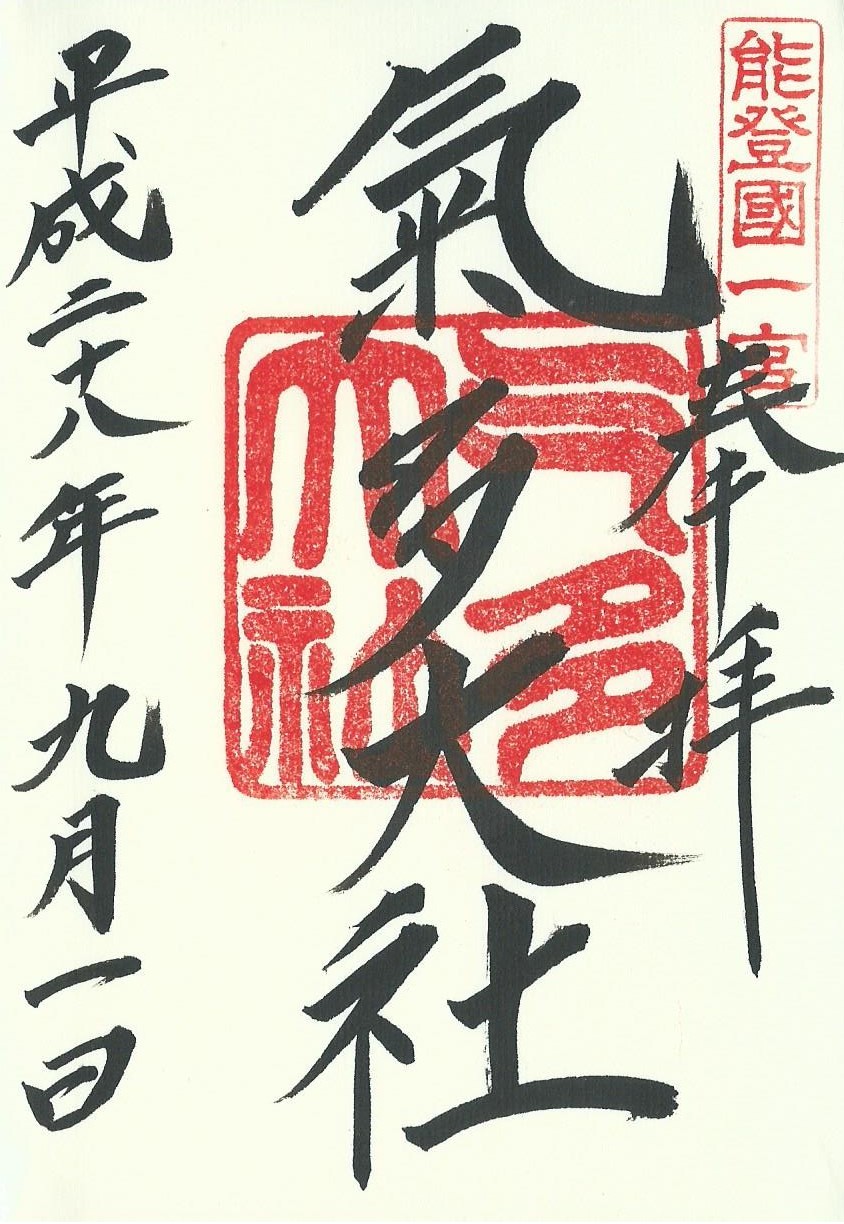 能登國一宮
奉拝
氣多大社
气多大社
平成二十八年九月一日